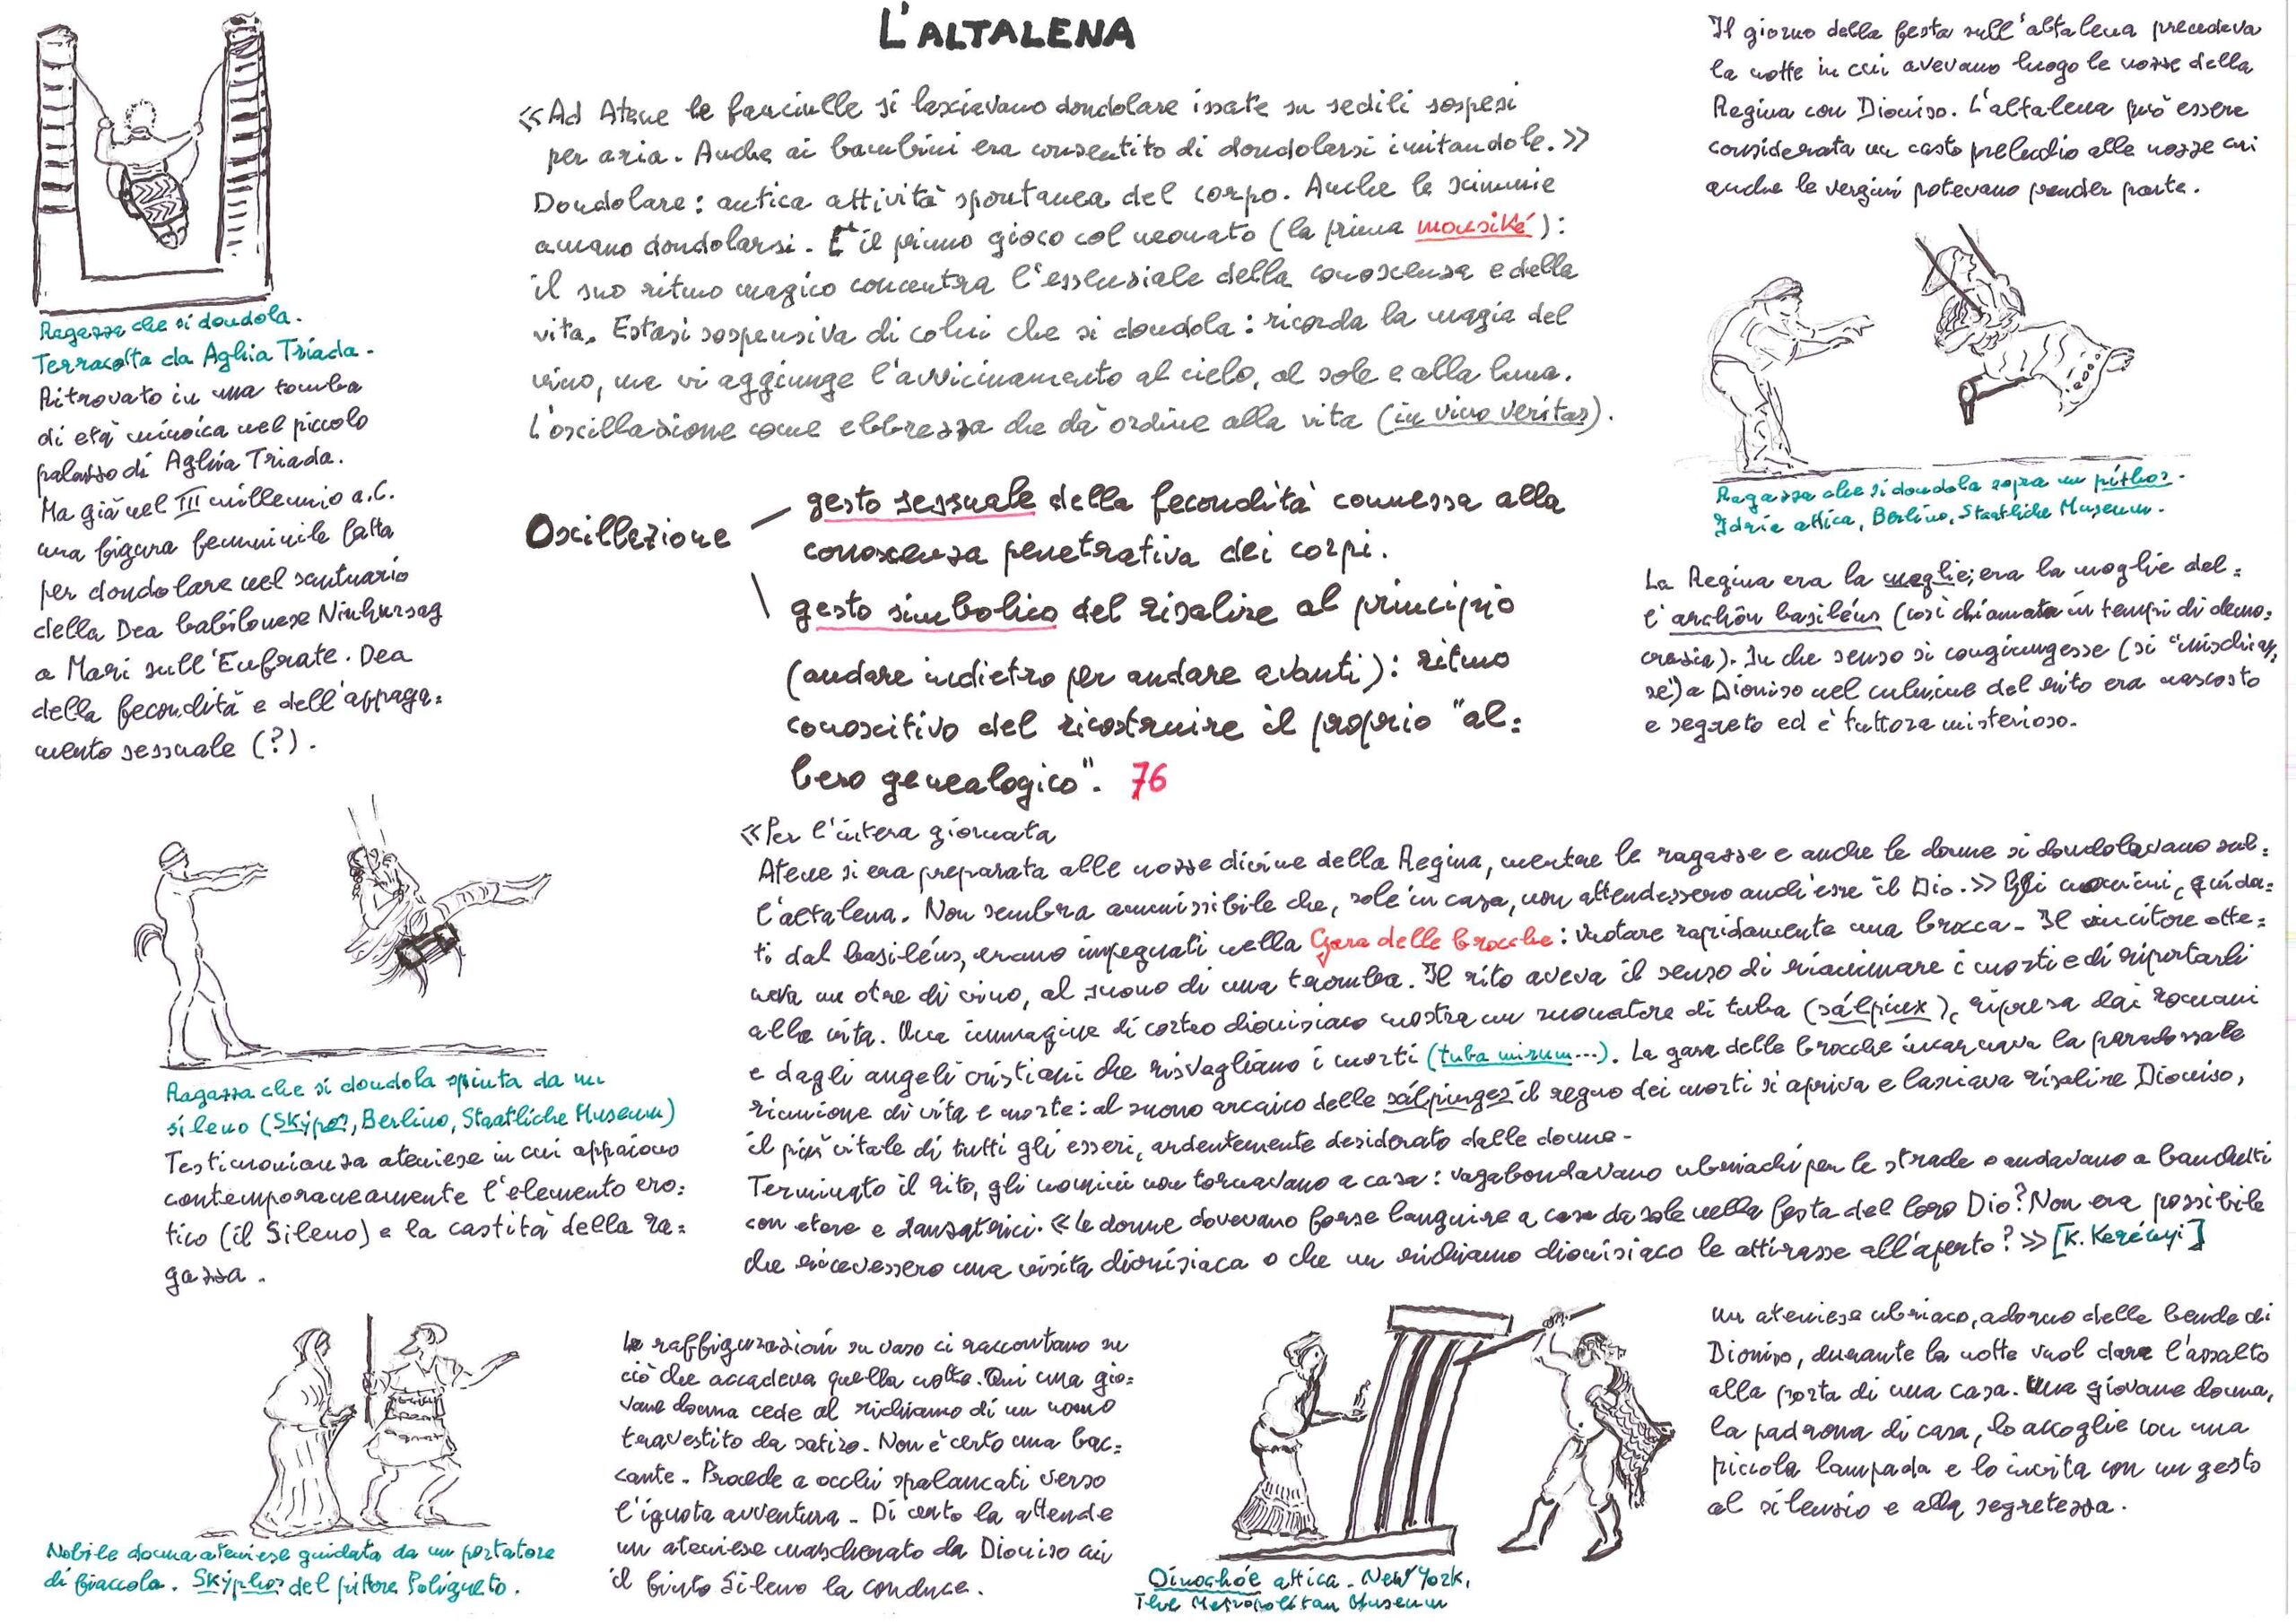 L'ALTALENA
«Ad Atene le fanciulle si lasciavano dondolare issate su sedili sospesi
per aria. Anche ai bambini era consentito di dondolarsi imitandole.»
Dondolare: antica attività spontanea del corpo. Anche le scimmie
amano dondolarsi. E' il primo gioco col neonato (la prima mousiké):
il suo ritmo magico concentra l'essenziale della conoscenza e della
vita. Estasi sospensiva di colui che si dondola: ricorda la magia del
vino, ma vi aggiunge l'avvicinamento al cielo, al sole e alla luna.
L'oscillazione come ebbrezza che dà ordine alla vita (in vino veritas).
Oscillazione
gesto sessuale della fecondità connessa alla
conoscenza penetrativa dei corpi.
gesto simbolico del risalire al principio
(andare indietro per andare avanti): ritmo
conoscitivo del ricostruire il proprio "al=
bero genealogico". 76
Ragazza che si dondola.
Terracotta da Aghia Triada.
Ritrovato in una tomba
di età minoica nel piccolo
palazzo di Aghia Triada.
Ma già nel III millennio a.C.
una figura femminile fatta
per dondolare nel santuario
della Dea babilonese Ninhursag
a Mari sull'Eufrate. Dea
della fecondità e dell'appaga=
mento sessuale (?).
Il giorno della festa sull'altalena precedeva
la notte in cui avevano luogo le nozze della
Regina con Dioniso. L'altalena può essere
considerata un casto preludio alle nozze cui
anche le vergini potevano prender parte.
Ragazza che si dondola sopra un pithos.
Idria attica, Berlino, Staatliche Museum.
La Regina era la moglie; era la moglie del=
l'archōn basiléus (così chiamata in tempi di demo=
crazia). In che senso si congiungesse (si "mischias
se") a Dioniso nel culmine del rito era nascosto
e segreto ed è tuttora misterioso.
«Per l'intera giornata
Atene si era preparata alle nozze divine della Regina, mentre le ragazze e anche le donne si dondolavano sul=
l'altalena. Non sembra ammissibile che, sole in casa, non attendessero anch'esse il Dio.» Gli uomini, guida=
ti dal basiléus, erano impegnati nella Gara delle brocche: vuotare rapidamente una brocca. Il vincitore otte=
neva un otre di vino, al suono di una tromba. Il rito aveva il senso di rianimare i morti e di riportarli
alla vita. Una immagine di corteo dionisiaco mostra un suonatore di tuba (sálpinx), ripresa dai romani
e dagli angeli cristiani che risvegliano i morti (tuba mirum...). La gara delle brocche incarnava la paradossale
riunione di vita e morte: al suono arcaico delle sálpinges il regno dei morti si apriva e lasciava risalire Dioniso,
il più vitale di tutti gli esseri, ardentemente desiderato dalle donne.
Terminato il rito, gli uomini non tornavano a casa: vagabondavano ubriachi per le strade o andavano a banchetti
con etere e danzatrici. «Le donne dovevano forse languire a casa da sole nella festa del loro Dio? Non era possibile
che ricevessero una visita dionisiaca o che un richiamo dionisiaco le attirasse all'aperto?» [K. Kerényi]
Ragazza che si dondola spinta da un
sileno (Skýpos, Berlino, Staatliche Museum)
Testimonianza ateniese in cui appaiono
contemporaneamente l'elemento ero=
tico (il Sileno) e la castità della ra=
gazza.
Nobile donna ateniese guidata da un portatore
di fiaccola. Skýphos del pittore Polignoto.
Le raffigurazioni su vaso ci raccontano su
ciò che accadeva quella notte. Qui una gio=
vane donna cede al richiamo di un uomo
travestito da satiro. Non è certo una bac=
cante. Procede a occhi spalancati verso
l'ignota avventura. Di certo la attende
un ateniese mascherato da Dioniso cui
il finto Sileno la conduce.
Oinochóe attica. New York,
The Metropolitan Museum
Un ateniese ubriaco, adorno delle bende di
Dioniso, durante la notte vuol dare l'assalto
alla porta di una casa. Una giovane donna,
la padrona di casa, lo accoglie con una
piccola lampada e lo invita con un gesto
al silenzio e alla segretezza.